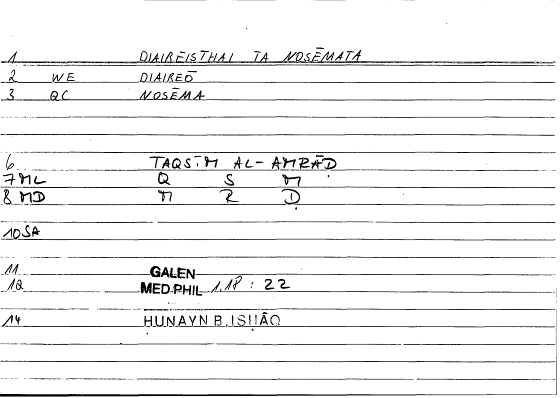 1 DIAIREISTHAI TA NOSĒMATA
2 WE DIAIREŌ
3 QC NOSĒMA
6 TAQSĪM AL-AMRĀḌ
7 ML Q S M
8 MD M R Ḍ
10 SA
11 GALEN
12 MED.PHIL 1.18 : 22
14 ḤUNAYN B. ISḤĀQ